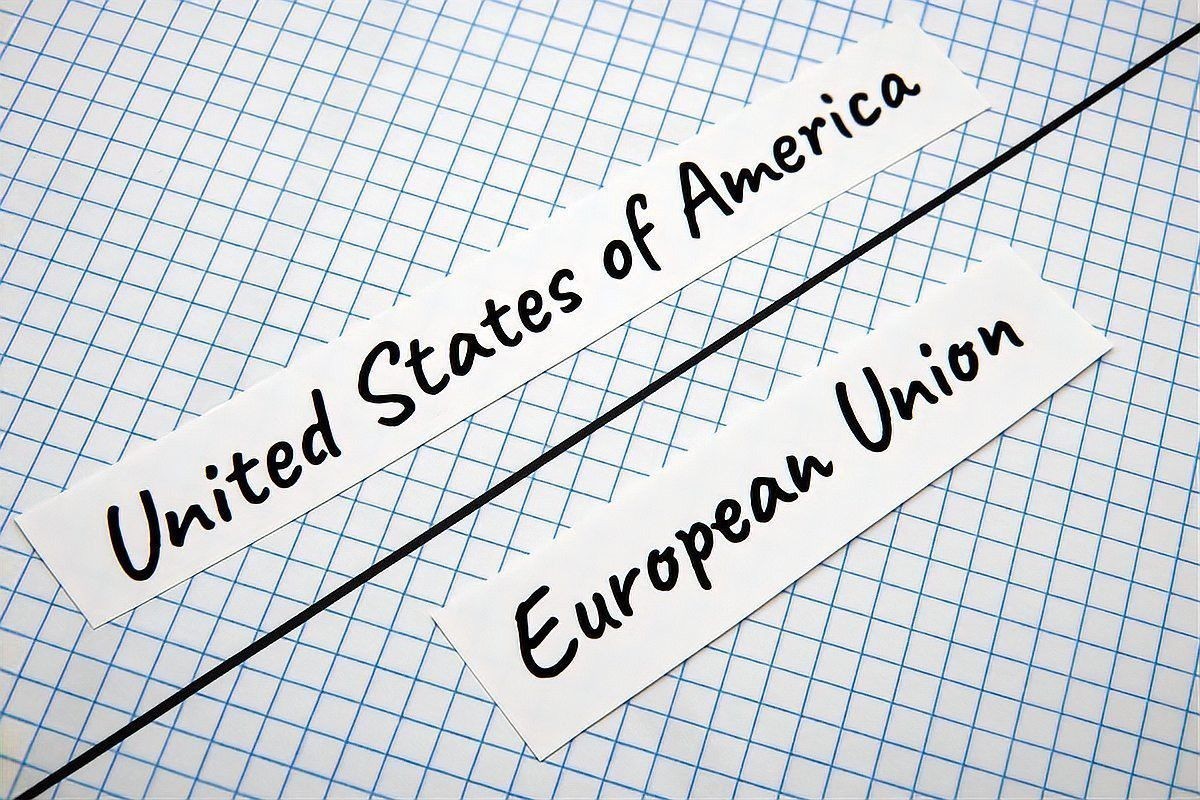 United States of America
European Union